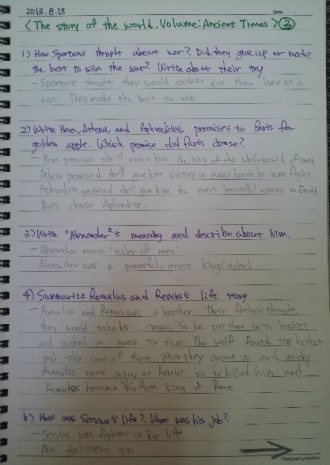 2013.8.13
<The story of the world. Volume: Ancient Times> ②
1) How Spartans thought about war? Did they give up or made
the best to win the war? Write about their try
- Spartans thought they would rather die than lose at a
war. They made the best to win
2) Write Hera, Athena, and Aphrodite's promises to Paris for
golden apple. Which promise did Paris choose?
- Hera promised she'll make him the king of the whole world
Athena promised she'll give him victory in every battle he ever fight.
Aphrodite promised she'll give him the most beautiful woman in Earth
Paris choose Aphrodite.
3) Write "Alexander"'s meaning and describe about him.
- Alexander means "ruler of men"
Alexander was a powerful, great king
4) Summarize Romulus and Remus's life story
- Romulus and Remus was a brother. Their
they would take his So he put them into basket
and it away to river. The wolf found the basket
and take care of them. When they grown up
Romulus were angry at Remus so he killed him and
Romulus became the first king of Rome
5) How was Servus's life? What was his job?
- Servus was fighter in his life
Also too